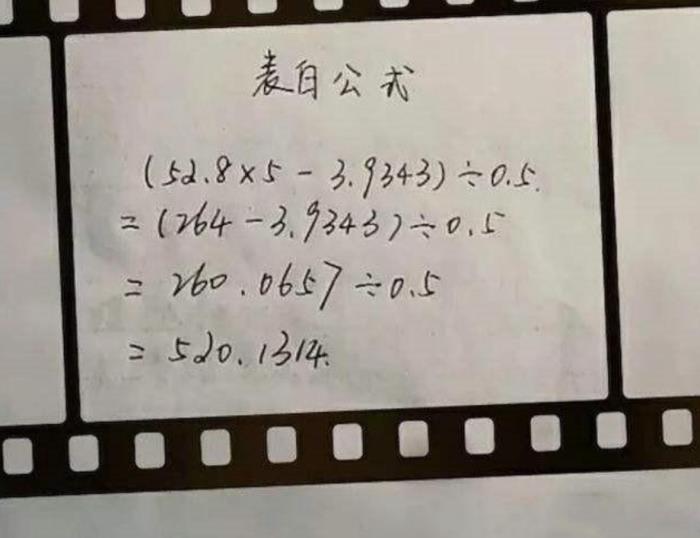 表白公式
(52.8×5-3.9343)÷0.5.
=(264-3.9343)÷0.5
=260.0657÷0.5
=520.1314.